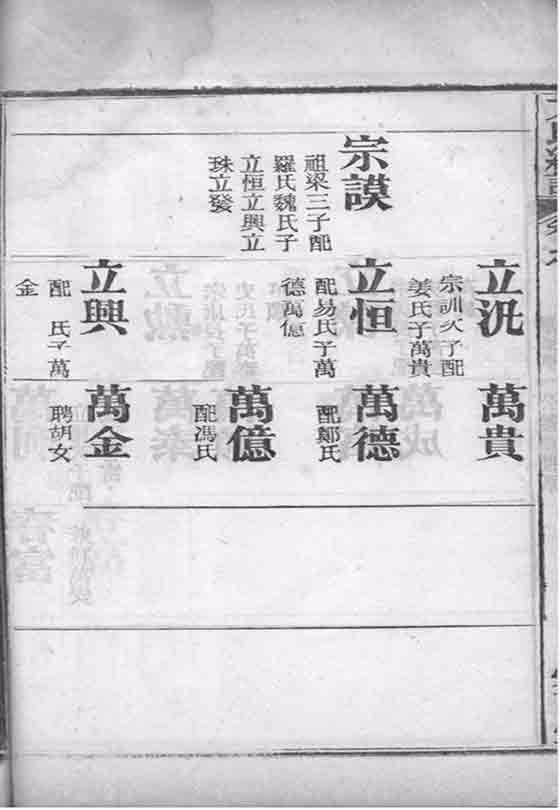 宗謨
祖梁三子配
羅氏魏氏子
立恒立興立
珠立發
立況
宗訓次子配
姜氏子萬貴
立恒
配易氏子萬
德萬億
立興
配　氏子萬
金
萬貴
萬德
配鄭氏
萬億
配馮氏
萬金
聘胡女